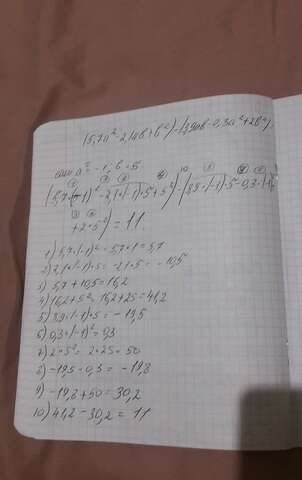 (5,7a²-2,1ab+b²)-(3,9ab-0,3a²+2b²),
если a=-1, b=5
(5,7·(-1)²-2,1·(-1)·5+5²)-(3,9·(-1)·5-0,3·(-1)²
+2·5²)=11
1) 5,7·(-1)²=5,7·1=5,7
2) 2,1·(-1)·5=-2,1·5=-10,5
3) 5,7+10,5=16,2
4) 16,2+5²=16,2+25=41,2
5) 3,9·(-1)·5=-19,5
6) 0,3·(-1)²=0,3
7) 2·5²=2·25=50
8) -19,5-0,3=-19,8
9) -19,8+50=30,2
10) 41,2-30,2=11